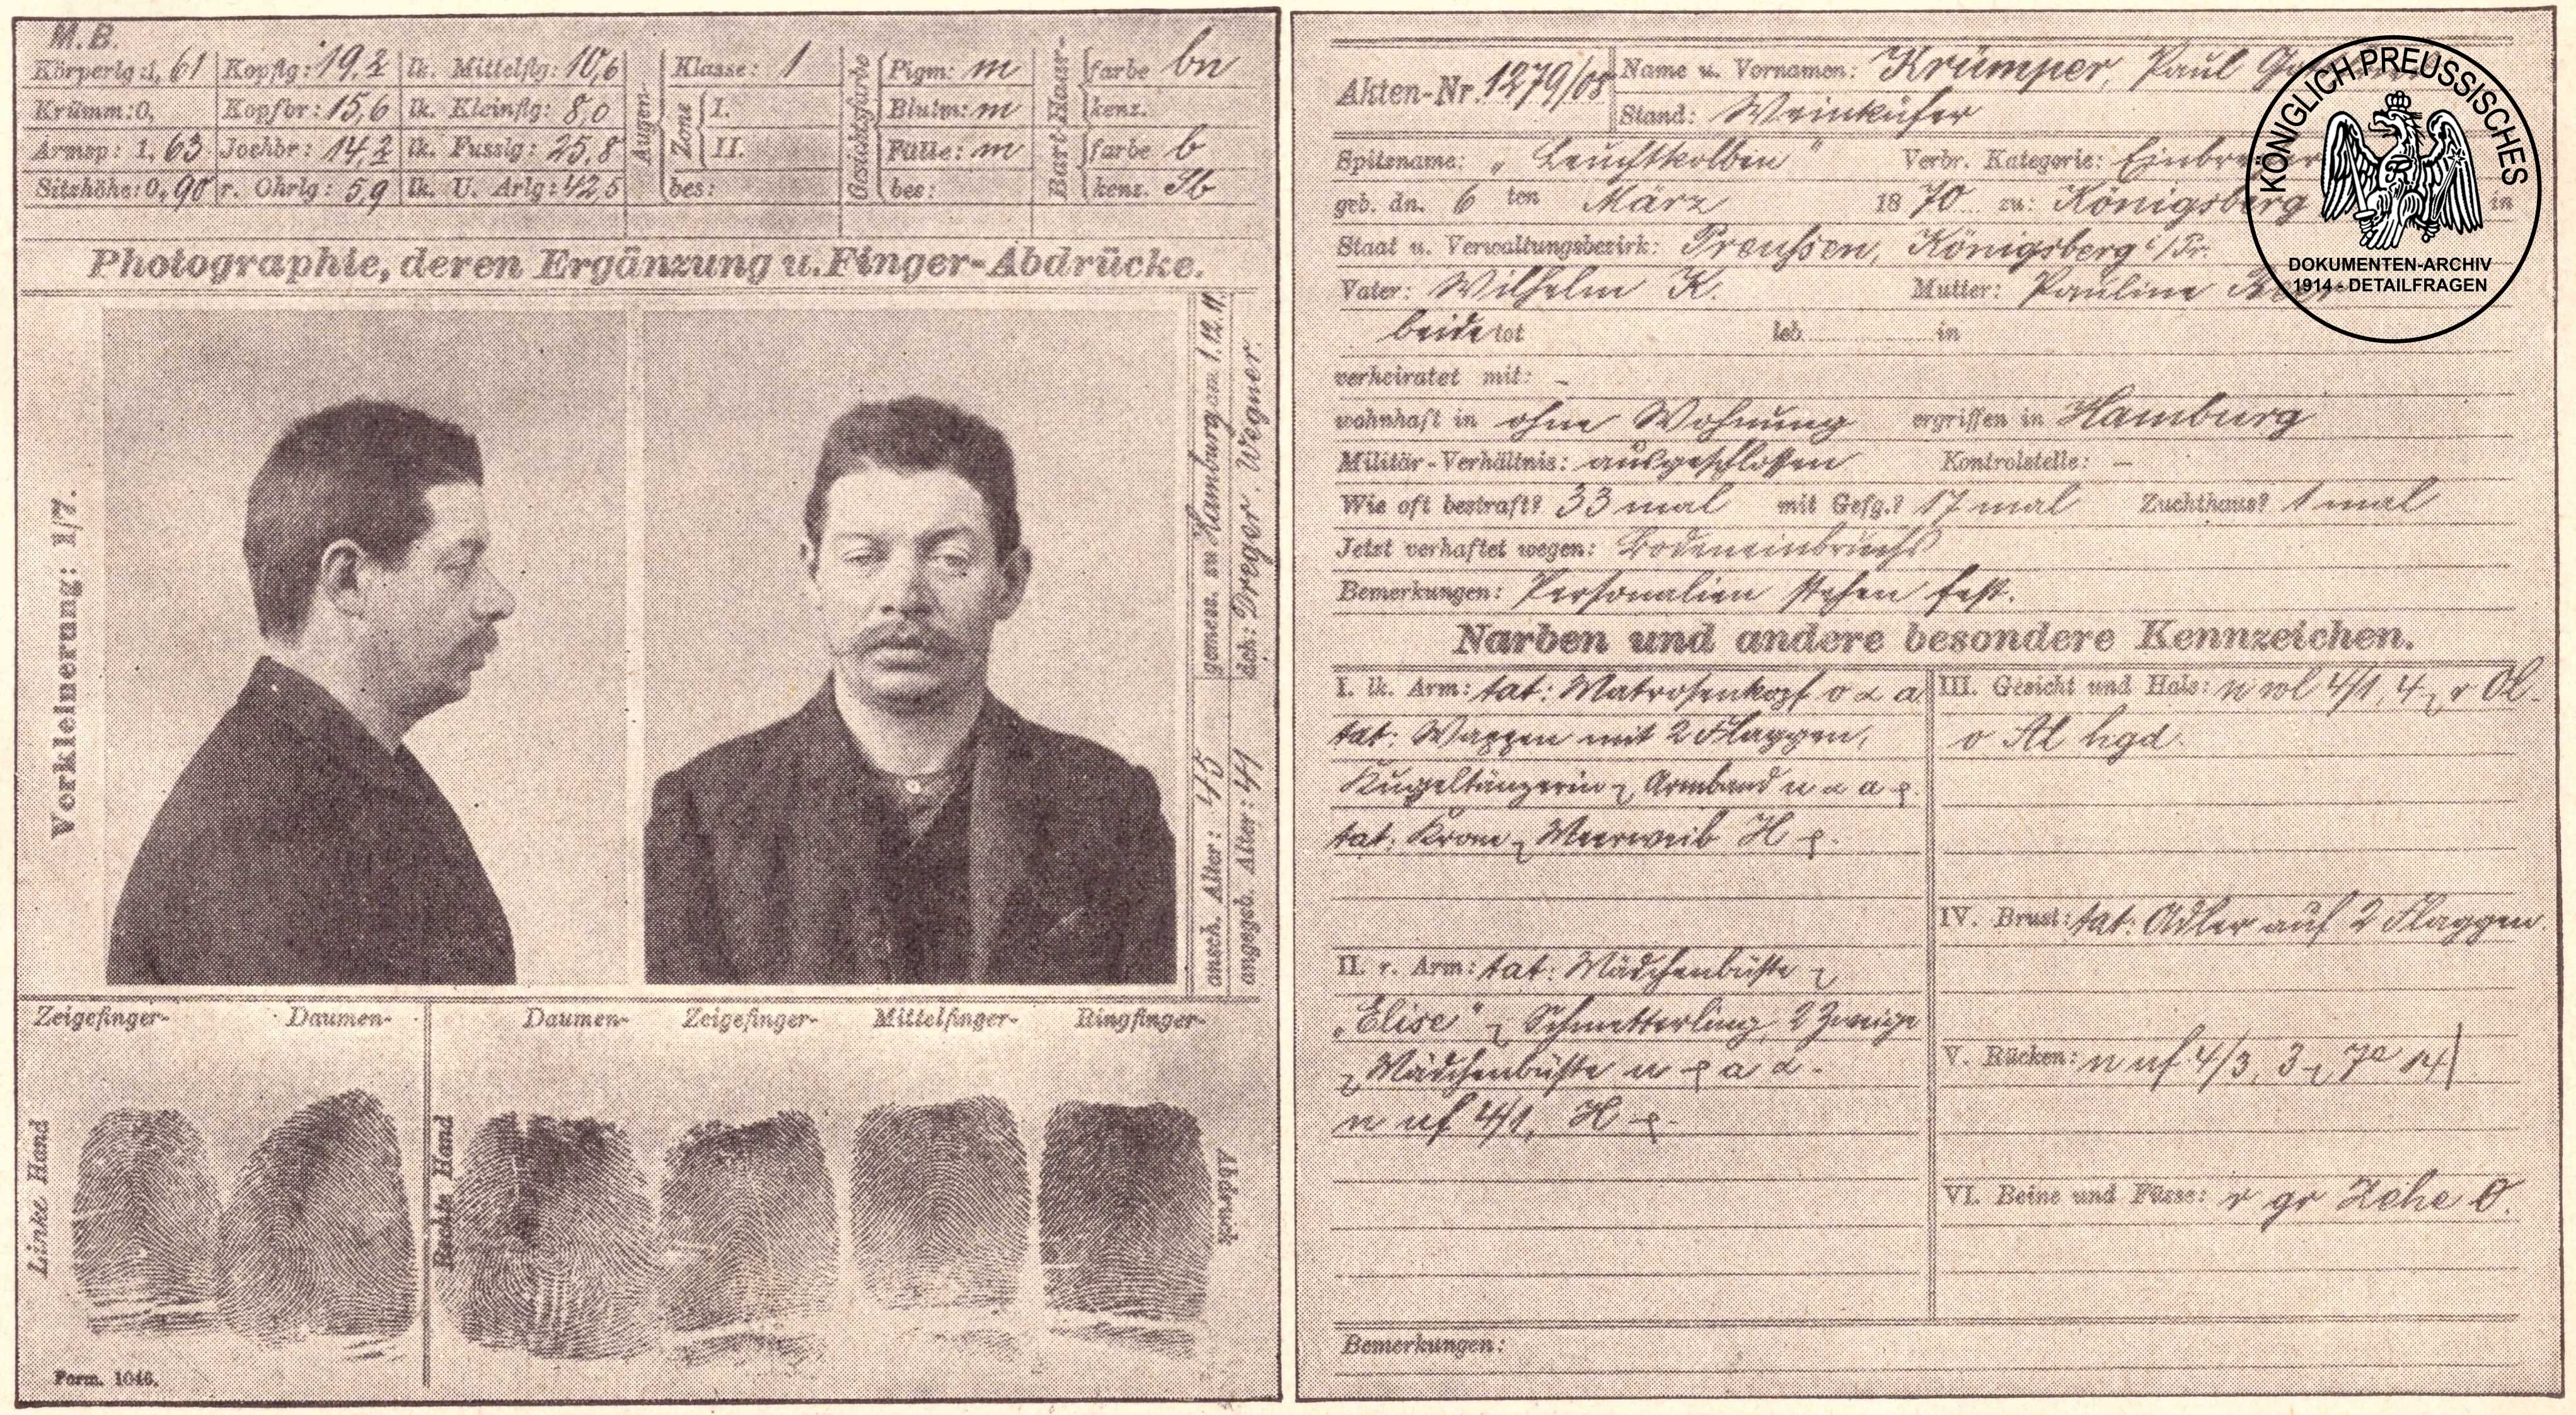 M.B.
Körperlg: 1, 61 Kopflg: 19,2 lk. Mittelflg: 10,6 Klasse: 1 Pigm: m farbe bn
Krümm: 0, Kopfbr: 15,6 lk. Kleinflg: 8,0 Augen- Zone I. Gesichtsfarbe Blutm: m Bart-Haar- kenz.
Armsp: 1, 63 Jochbr: 14,2 lk. Fusslg: 25,8 II. Fülle: m farbe b
Sitzhöhe: 0, 90 r. Ohrlg: 5,9 lk. U. Arlg: 42,5 bes: bes: kenz. Sb
Photographie, deren Ergänzung u. Finger-Abdrücke.
Verkleinerung: 1/7.
gemess. zu Hamburg am 1.12.11.
dch: Dreger. Wegner.
ansch. Alter: 45
angegeb. Alter: 41
Zeigefinger- Daumen- Daumen- Zeigefinger- Mittelfinger- Ringfinger-
Linke Hand
Rechte Hand
Abdruck
Form. 1046.
Akten-Nr. 1279/08
Name u. Vornamen: Krümper, Paul
Stand: Weinküfer
Spitzname: „Leuchtkolben" Verbr. Kategorie: Einbrecher
geb. dn. 6 ten März 1870 zu: Königsberg in
Staat u. Verwaltungsbezirk: Preussen, Königsberg i/Pr.
Vater: Wilhelm K. Mutter: Pauline
beide tot leb. in
verheiratet mit: –
wohnhaft in ohne Wohnung ergriffen in Hamburg
Militär-Verhältnis: ausgeschlossen Kontrolstelle: –
Wie oft bestraft? 33 mal mit Gefg.? 17 mal Zuchthaus? 1 mal
Jetzt verhaftet wegen: Bodeneinbruchs
Bemerkungen: Personalien stehen fest.
Narben und andere besondere Kennzeichen.
I. lk. Arm: tat: Matrosenkopf o a
tat: Wappen mit 2 Flaggen,
Kugeltänzerin Armband u a
tat: Krone Meerweib H
II. r. Arm: tat: Mädchenbüste
„Elise" Schmetterling, 2 Zweige
Mädchenbüste u a
n uf 4/1, H
III. Gesicht und Hals: n wl 4/1, 4 r Ol-
o Al hgd.
IV. Brust: tat: Adler auf 2 Flaggen.
V. Rücken: n uf 4/3, 3 7e 14
VI. Beine und Füsse: r gr Zehe O.
Bemerkungen:
KÖNIGLICH PREUSSISCHES
DOKUMENTEN-ARCHIV
1914 - DETAILFRAGEN